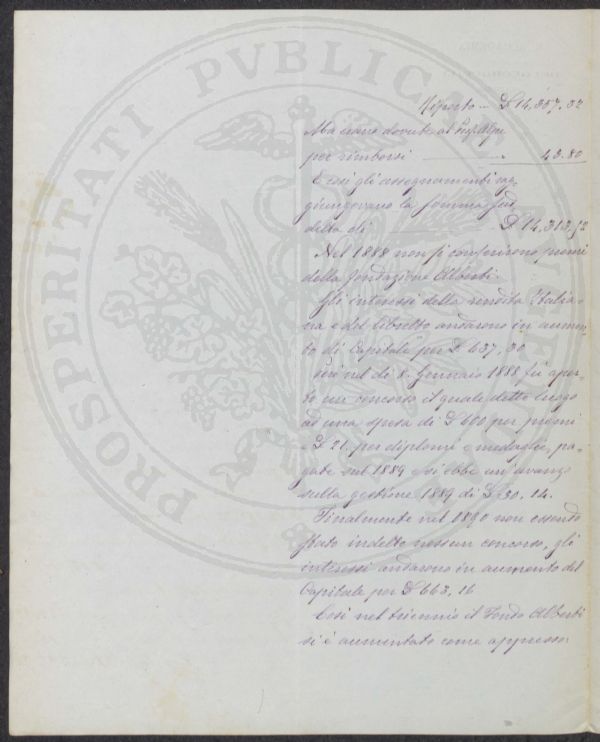 PROSPERITATI PVBLICAE AVGENDAE
Riporto — £ 14.357.32
Ma erano dovute al
per rimborsi — 43.80
E così gli assegnamenti rag-
giungevano la somma sud
detta di £ 14.313,52
Nel 1888 non si conferirono premi
della fondazione Alberti
Gli interessi della rendita Italia-
na e del libretto andarono in aumen-
to di Capitale per £ 637,30
nel dì 8. Gennaio 1888 fu aper-
to un concorso il quale dette luogo
ad una spesa di £ 600 per premi
e £ 21. per diplomi e medaglie, pa-
gate nel 1889 e si ebbe un'avanzo
sulla gestione 1889 di £ 30. 14.
Finalmente nel 1890 non essendo
stato indetto nessun concorso, gli
interessi andarono in aumento del
Capitale per £ 663,16
Così nel triennio il Fondo Alberti
si è aumentato come appresso: